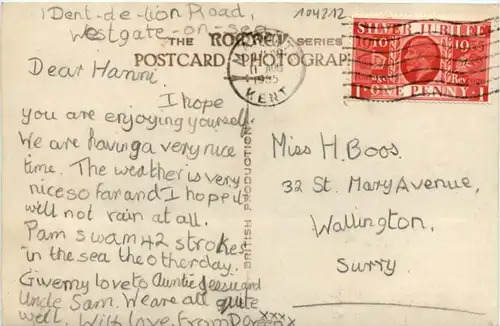 1 Dent-de-lion Road,
Westgate-on-sea
104212
THE ROMNEY SERIES
POSTCARD PHOTOGRAP
KENT
1935
SILVER JUBILEE
1910 1935
1 ONE PENNY 1
BRITISH PRODUCTION
Dear Hanni.
I hope
you are enjoying yourself.
We are having a very nice
time. The weather is very
nice so far and I hope it
will not rain at all.
Pam swam 42 strokes
in the sea the other day.
Give my love to Auntie Jessie and
Uncle Sam. We are all quite
well. With love from
xxxx
Miss H. Boos.
32 St. Mary Avenue,
Wallington,
Surry.